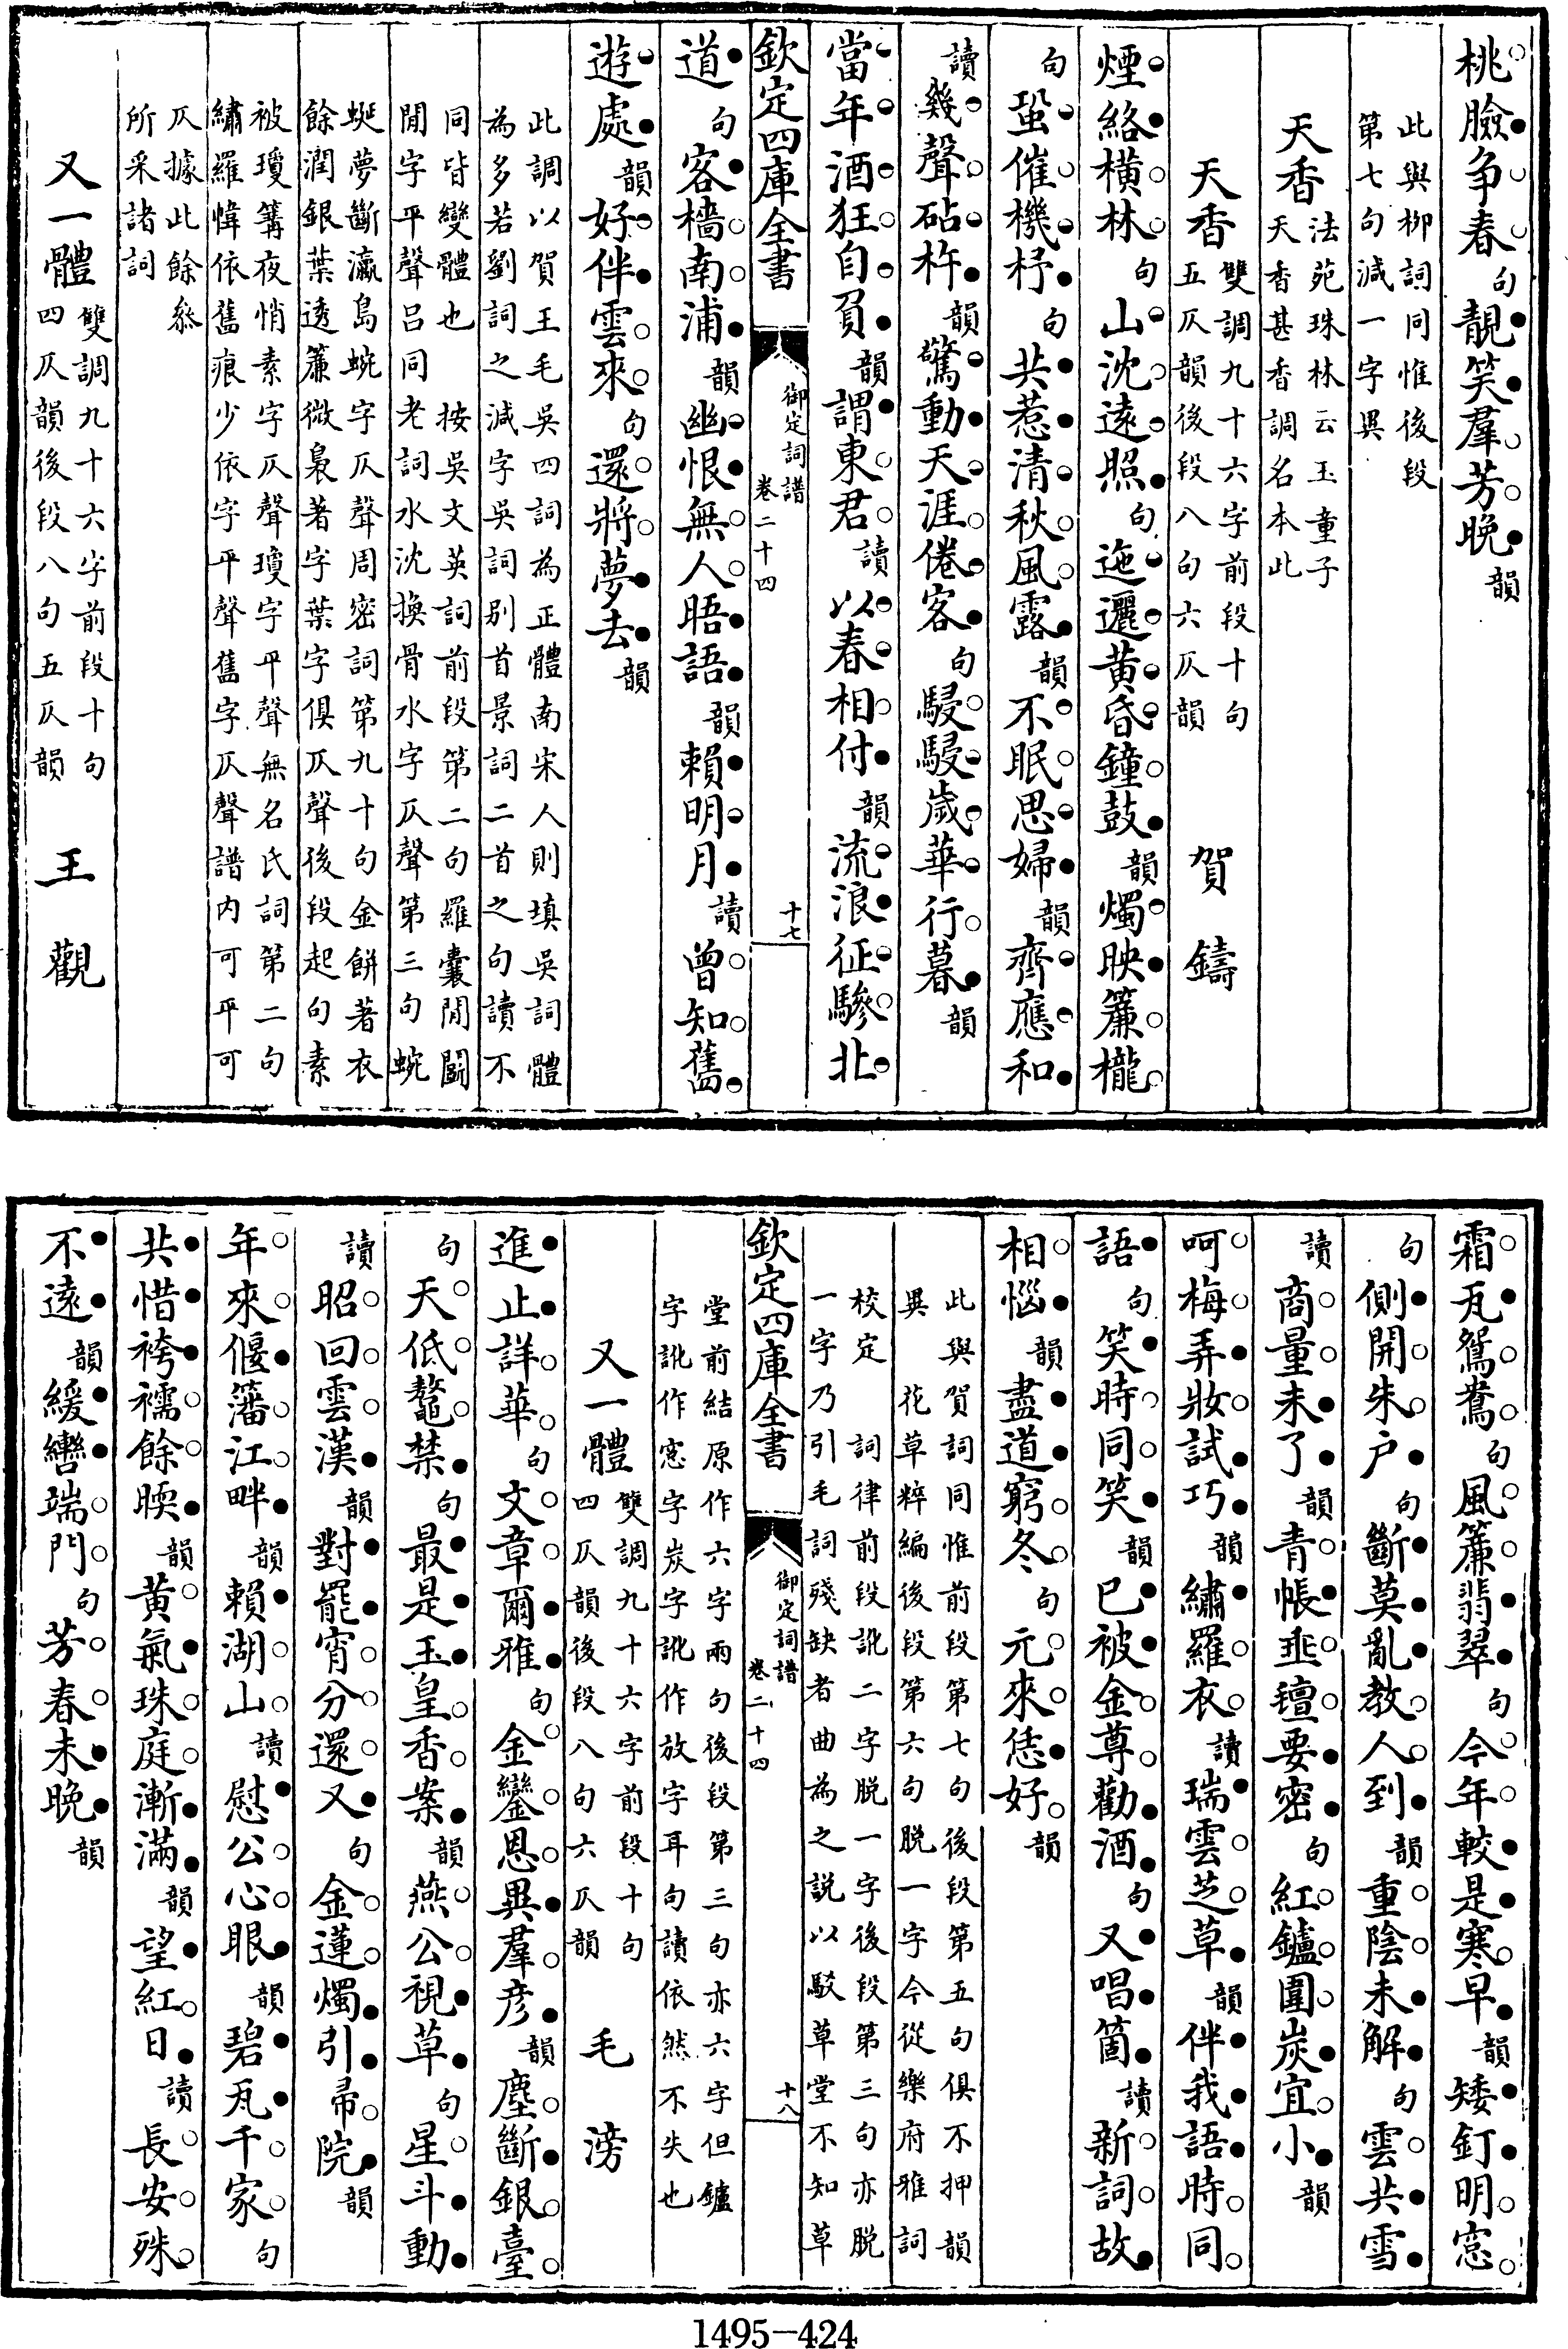 桃臉争春句靚笑羣芳晚韻
此與栁詞同惟後段
第七句減一字異
天香法苑珠林云玉童子
天香甚香調名本此
天香雙調九十六字前段十句
五仄韻後段八句六仄韻 賀鑄
煙絡横林句山沈逺照句迤邐黄昏鐘鼓韻燭映簾櫳
句蛩催機杼句共惹清秋風露韻不眠思婦韻齊應和
讀幾聲砧杵韻驚動天涯倦客句駸駸歲華行暮韻
當年酒狂自負韻謂東君讀以春相付韻流浪征驂北
欽定四庫全書 御定詞譜 卷二十四 十七
道句客檣南浦韻幽恨無人晤語韻賴明月讀曾知舊
遊處韻好伴雲來句還將夢去韻
此調以賀王毛吳四詞為正體南宋人則填吳詞體
為多若劉詞之減字吳詞别首景詞二首之句讀不
同皆變體也 按吳文英詞前段第二句羅囊閒鬬
閒字平聲吕同老詞水沈換骨水字仄聲第三句蜿
蜒夢斷瀛島蜿字仄聲周密詞第九十句金餅著衣
餘潤銀葉透簾微裊著字葉字俱仄聲後段起句素
被瓊篝夜悄素字仄聲瓊字平聲無名氏詞第二句
繡羅幃依舊痕少依字平聲舊字仄聲譜内可平可
仄據此餘叅
所采諸詞
又一體雙調九十六字前段十句
四仄韻後段八句五仄韻 王觀
霜瓦鴛鴦句風簾翡翠句今年較是寒早韻矮釘明窓
句側開朱户句斷莫亂教人到韻重隂未解句雲共雪
讀商量未了韻青帳垂氊要密句紅鑪圍炭宜小韻
呵梅弄妝試巧韻繡羅衣讀瑞雲芝草韻伴我語時同
語句笑時同笑韻已被金尊勸酒句又唱箇讀新詞故
相惱韻盡道窮冬句元來恁好韻
此與賀詞同惟前段第七句後段第五句俱不押韻
異 花草粹編後段第六句脱一字今從樂府雅詞
校定 詞律前段訛二字脱一字後段第三句亦脱
一字乃引毛詞殘缺者曲為之説以駁草堂不知草
欽定四庫全書 御定詞譜 卷二十四 十八
堂前結原作六字兩句後段第三句亦六字但鑪
字訛作窓字炭字訛作放字耳句讀依然不失也
又一體雙調九十六字前段十句
四仄韻後段八句六仄韻 毛滂
進止詳華句文章爾雅句金鑾恩異羣彦韻塵斷銀臺
句天低鼇禁句最是玉皇香案韻燕公視草句星斗動
讀昭回雲漢韻對罷宵分還又句金蓮燭引歸院韻
年來偃藩江畔韻賴湖山讀慰公心眼韻碧瓦千家句
共惜袴襦餘暖韻黄氣珠庭漸滿韻望紅日讀長安殊
不逺韻緩轡端門句芳春未晚韻
1495-424